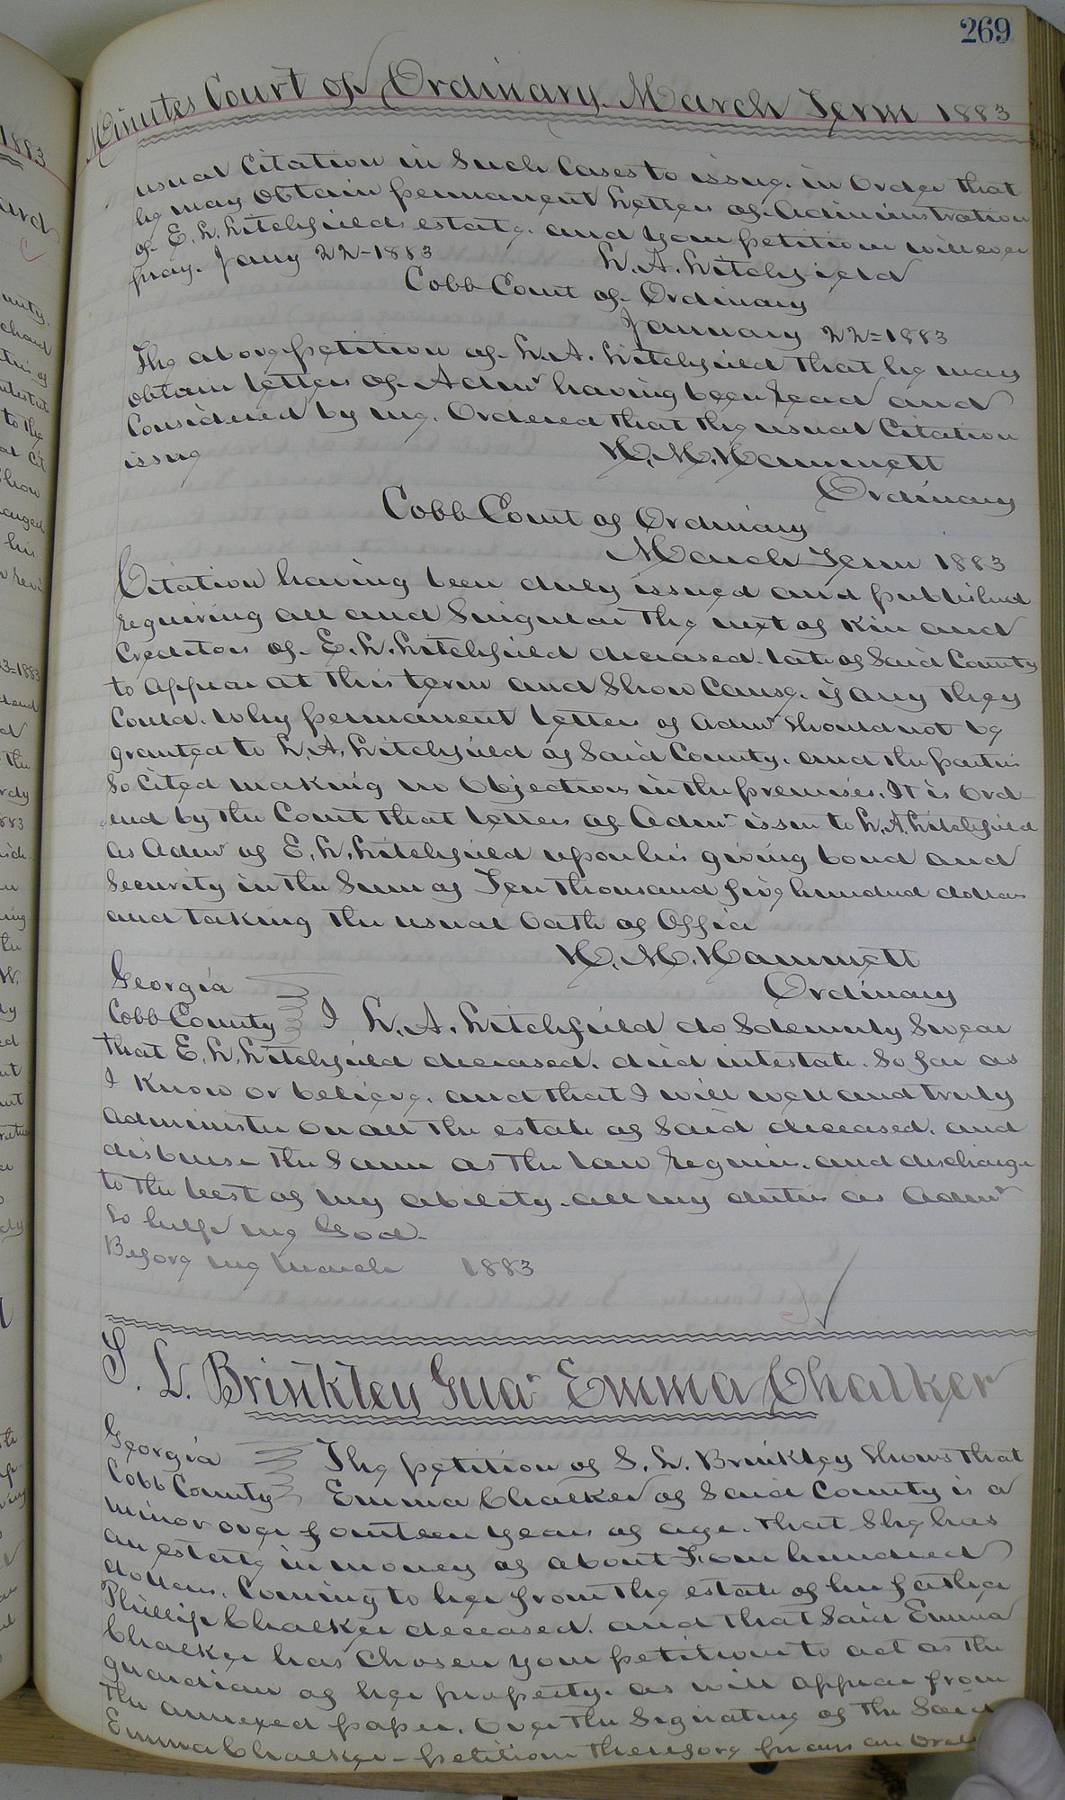 269
Minutes Court of Ordinary March Term 1883
usual Citation in Such Cases to issue. in Order that
he may Obtain permanent Letters of Administration
of E. L. Litchfields estate. and your petitioner will ever
pray. Jany 22-1883 L. A. Litchfield
Cobb Court of Ordinary
January 22=1883
The above petition of L. A. Litchfield that he may
obtain Letters of Admr having been read and
Considered by me. Ordered that the usual Citation
issue H. M. Hammett
Ordinary
Cobb Court of Ordinary
March Term 1883
Citation having been duly issued and published
requiring all and Singular the next of Kin and
Creditors of E. L. Litchfield deceased late of Said County
to appear at this term and Show Cause. if any they
Could. Why permanent letters of Admr should not be
granted to L. A. Litchfield of Said County. and the parties
So Cited making no Objections in the premises. It is Ord
ered by the Court that letters of Admr issue to L. A. Litchfield
as Admr of E. L. Litchfield upon his giving bond and
Security in the Sum of Ten thousand five hundred dollars
and taking the usual Oath of Office
H. M. Hammett
Ordinary
Georgia
Cobb County I L. A. Litchfield do Solemnly Swear
that E. L. Litchfield deceased. died intestate. So far as
I Know or believe. and that I will well and truly
administer on all the estate of Said deceased. and
disburse the Same as the law require. and discharge
to the best of my ability. all my duties as Admr
So help me God.
Before me March 1883
S. L. Brinkley Guar Emma Chalker
Georgia The petition of S. L. Brinkley Shows that
Cobb County Emma Chalker of Said County is a
minor over fourteen years of age. that She has
an estate in money of about Four hundred
dollars. Coming to her from the estate of her father
Phillip Chalker deceased. and that Said Emma
Chalker has Chosen your petitioner to act as the
guardian of her property. as will appear from
the annexed paper. Over the Signature of the Said
Emma Chalker - petitioner therefore prays an Order